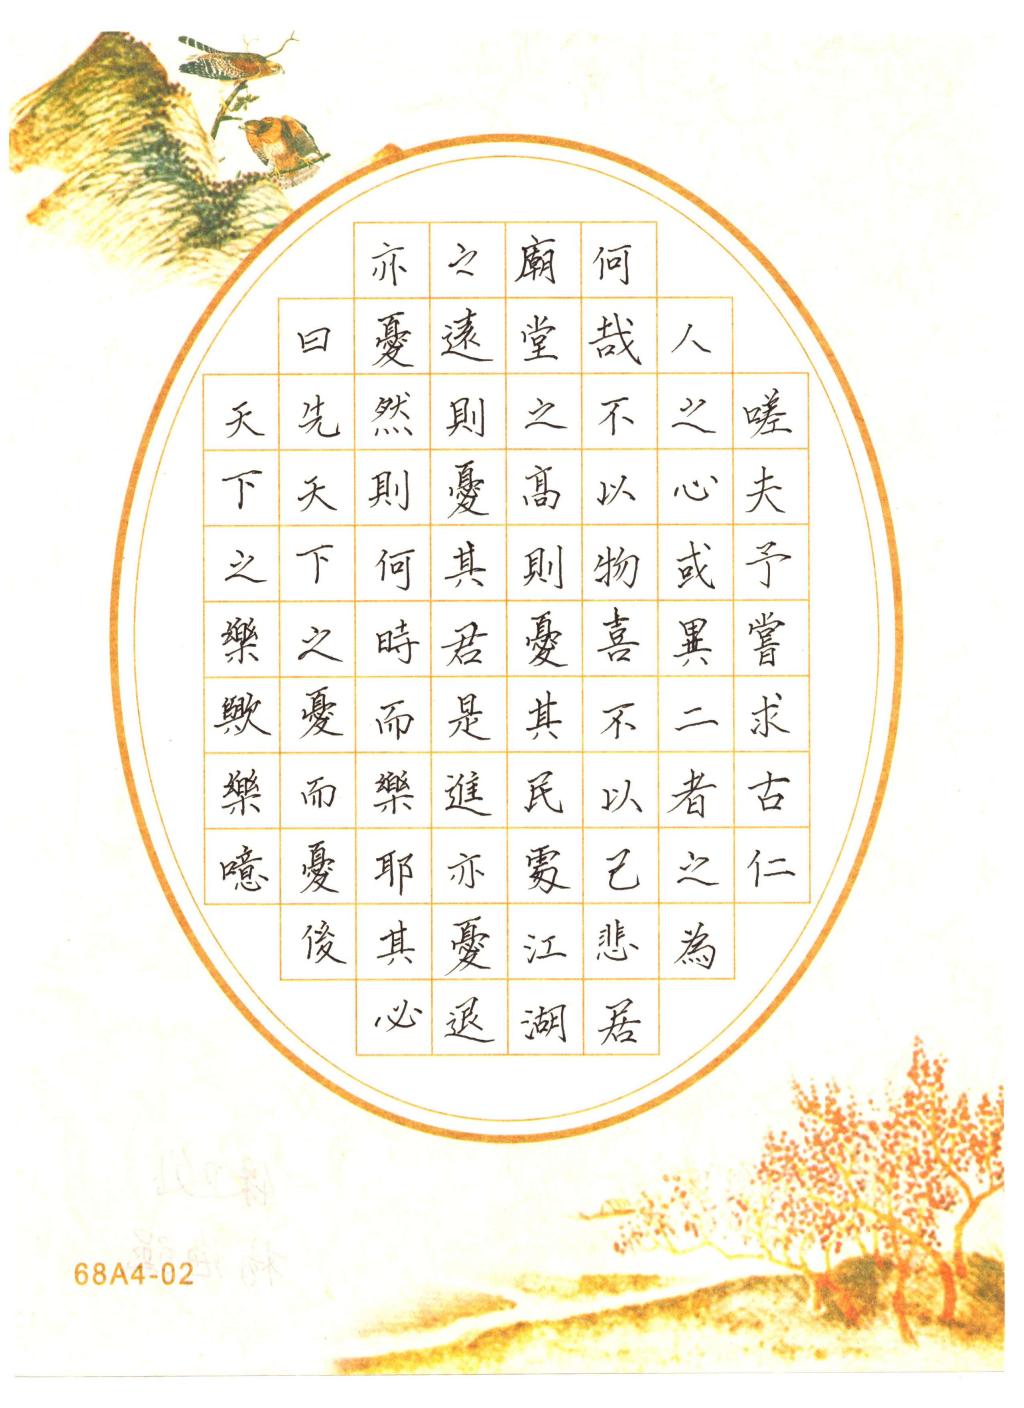 嗟夫予嘗求古仁
人之心或異二者之為
何哉不以物喜不以己悲居
廟堂之高則憂其民處江湖
之遠則憂其君是進亦憂退
亦憂然則何時而樂耶其必
曰先天下之憂而憂後
天下之樂歟樂噫
68A4-02